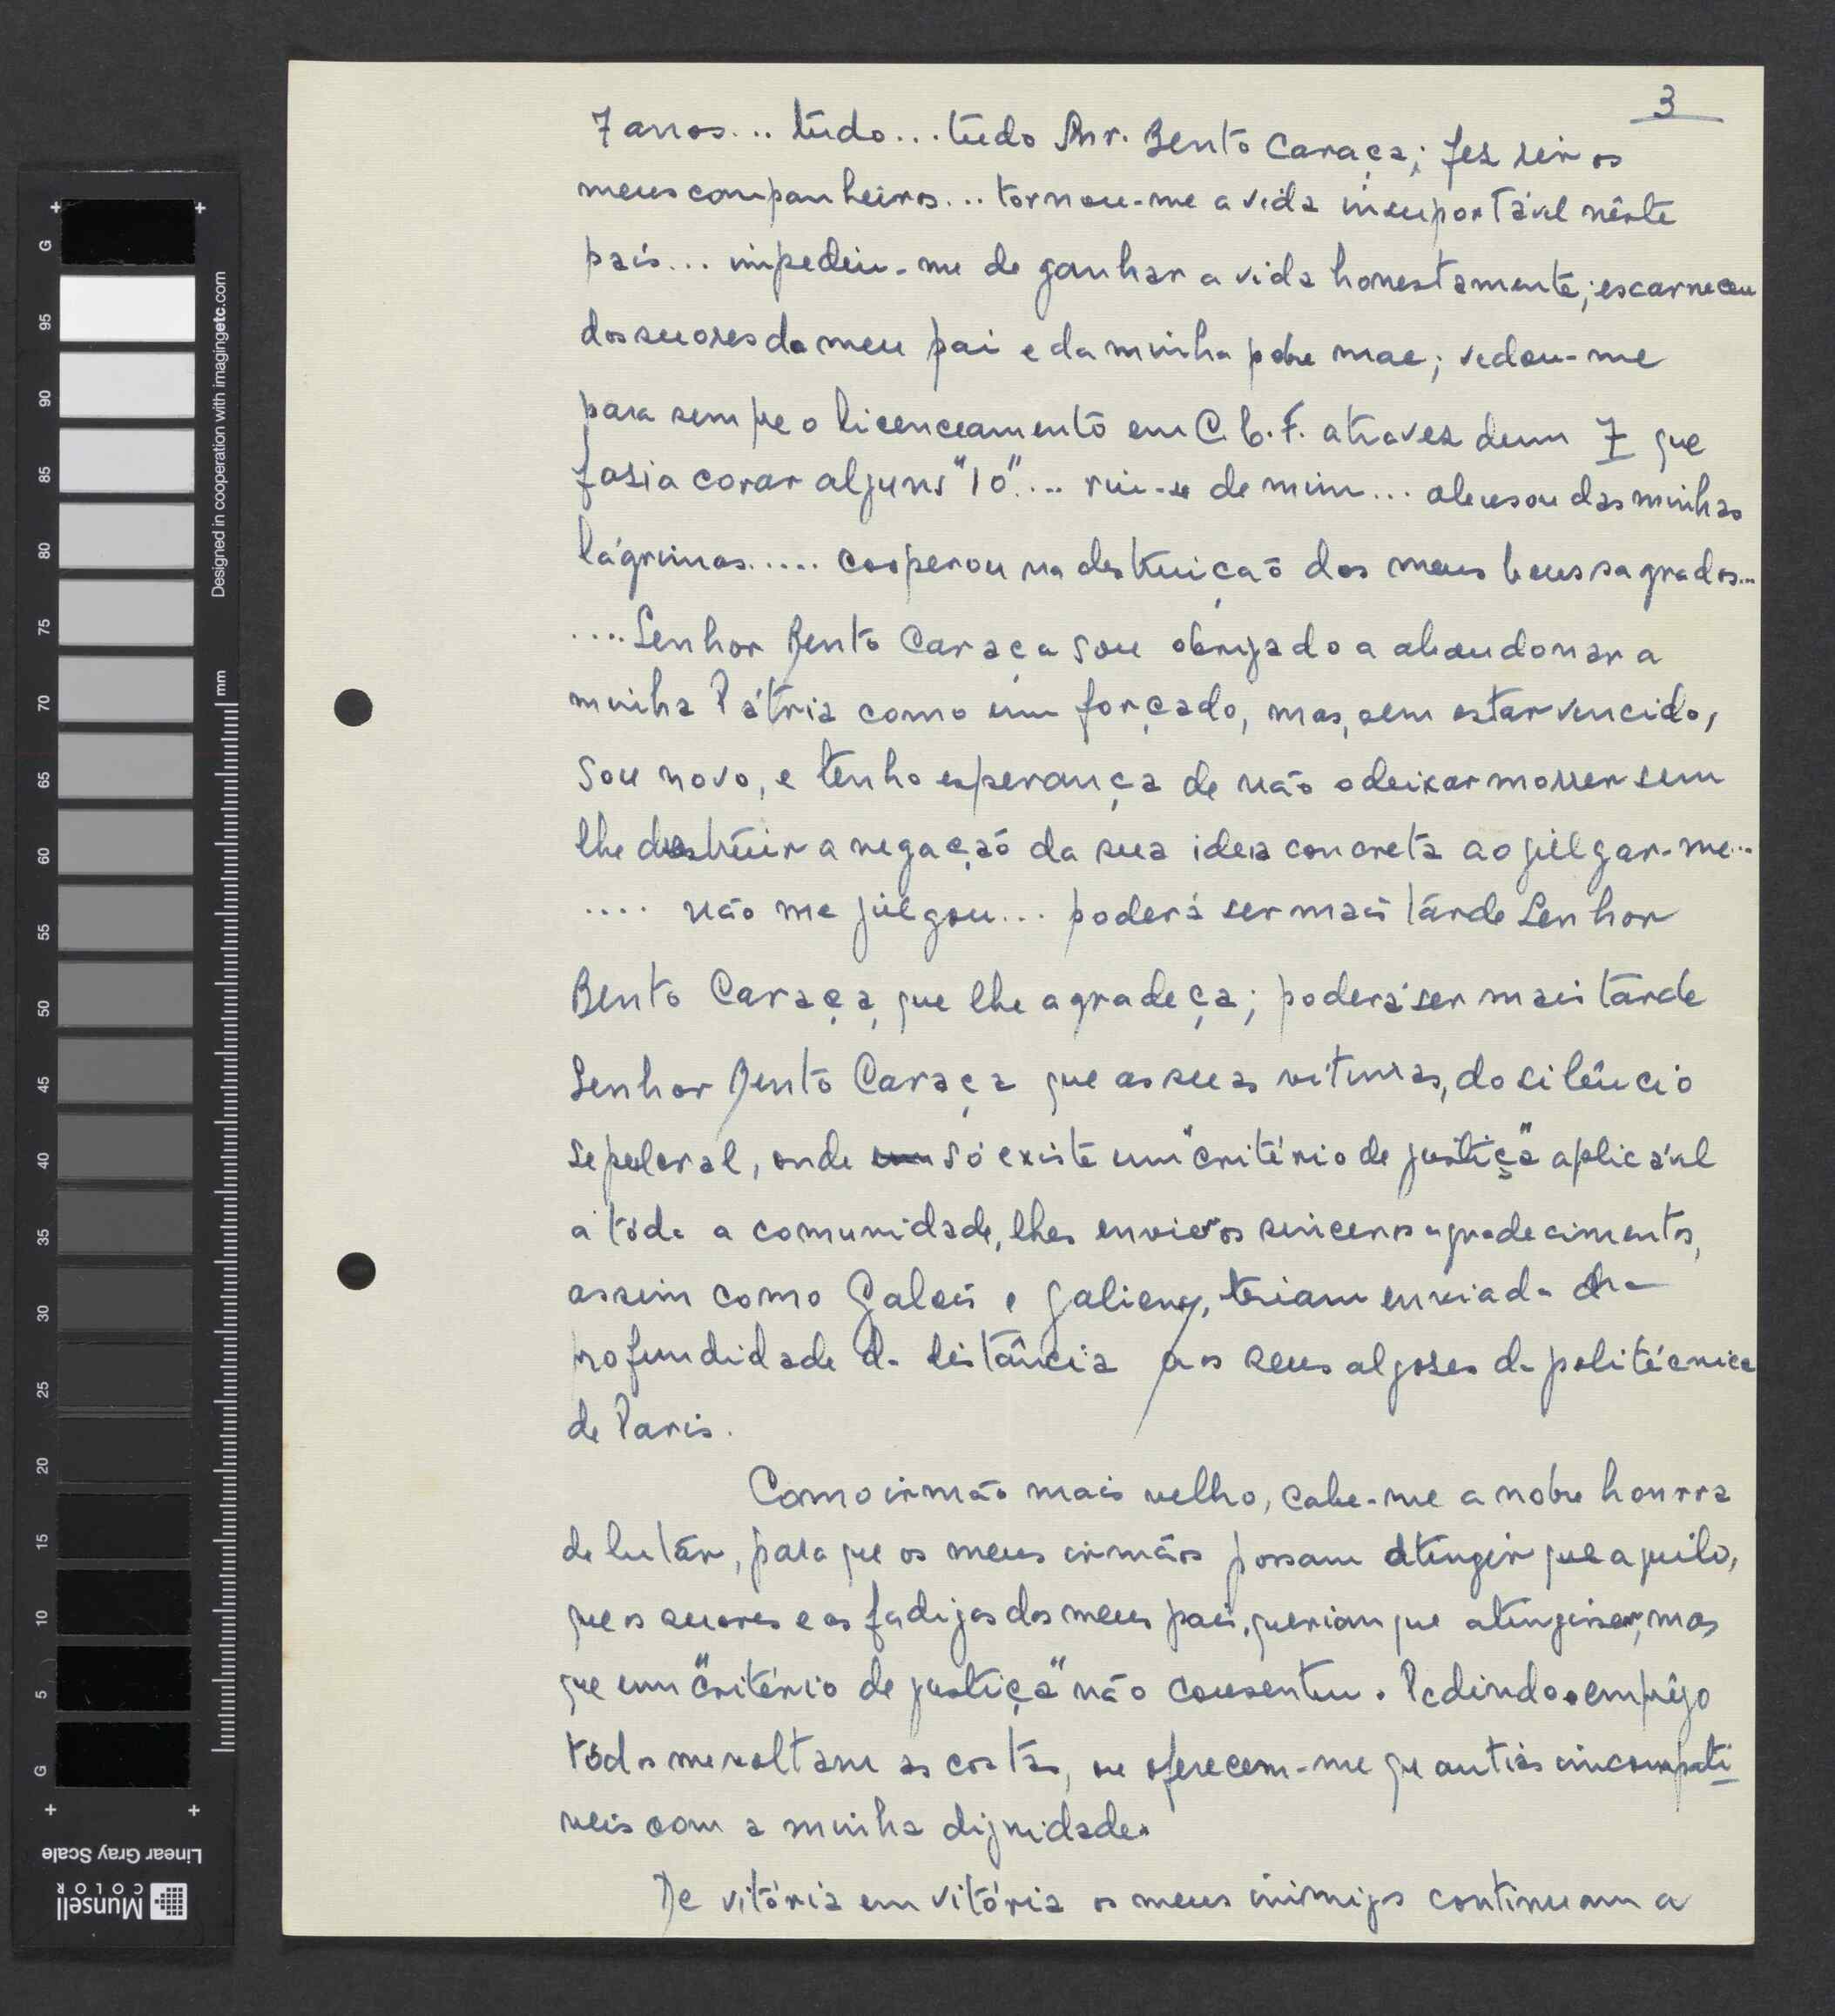 3
7 anos... tudo... tudo Snr. Bento Caraça; fez rir os
meus companheiros... tornou-me a vida insuportável nêste
país... impediu-me de ganhar a vida honestamente; escarneceu
dos suores do meu pai e da minha pobre mae; vedou-me
para sempre o licenceamento em C. E. F. atravez dum 7 que
fasia corar alguns "10".... riu-se de mim... abusou das minhas
lágrimas..... cooperou na destruição dos meus bens sagrados...
....Senhor Bento Caraça sou obrigado a abandonar a
minha Pátria como um forçado, mas, sem estar vencido,
sou novo, e tenho esperança de não o deixar morrer sem
lhe destruir a negação da sua ideia concreta ao julgar-me...
.... não me julgou... poderá ser mais tárde Senhor
Bento Caraça, que lhe agradeça; poderá ser mais tarde
Senhor Bento Caraça que as suas vitimas, do silêncio
sepulcral, onde só existe um "critério de justiça" aplicável
a tôda a comunidade, lhes envie os sinceros agradecimentos,
assim como Galois e teriam enviado da
profundidade da distância aos seus algozes da politécnica
de Paris.
Como irmão mais velho, cabe-me a nobre honrra
de lutár, para que os meus irmãos possam atingir que aquilo,
que os suores e as fadigas dos meus pais, queriam que atingisse, mas
que um "critério de justiça" não consentiu. Pedindo emprêgo
tôdos me voltam as costas, ou oferecem-me quantias incompati
veis com a minha dignidade.
De vitória em vitória os meus inimigos continuam a
Designed in cooperation with imagingetc.com
mm
G
95
90
85
80
75
70
65
60
55
50
45
40
35
30
25
20
15
10
5
G
Linear Gray Scale
Munsell
COLOR